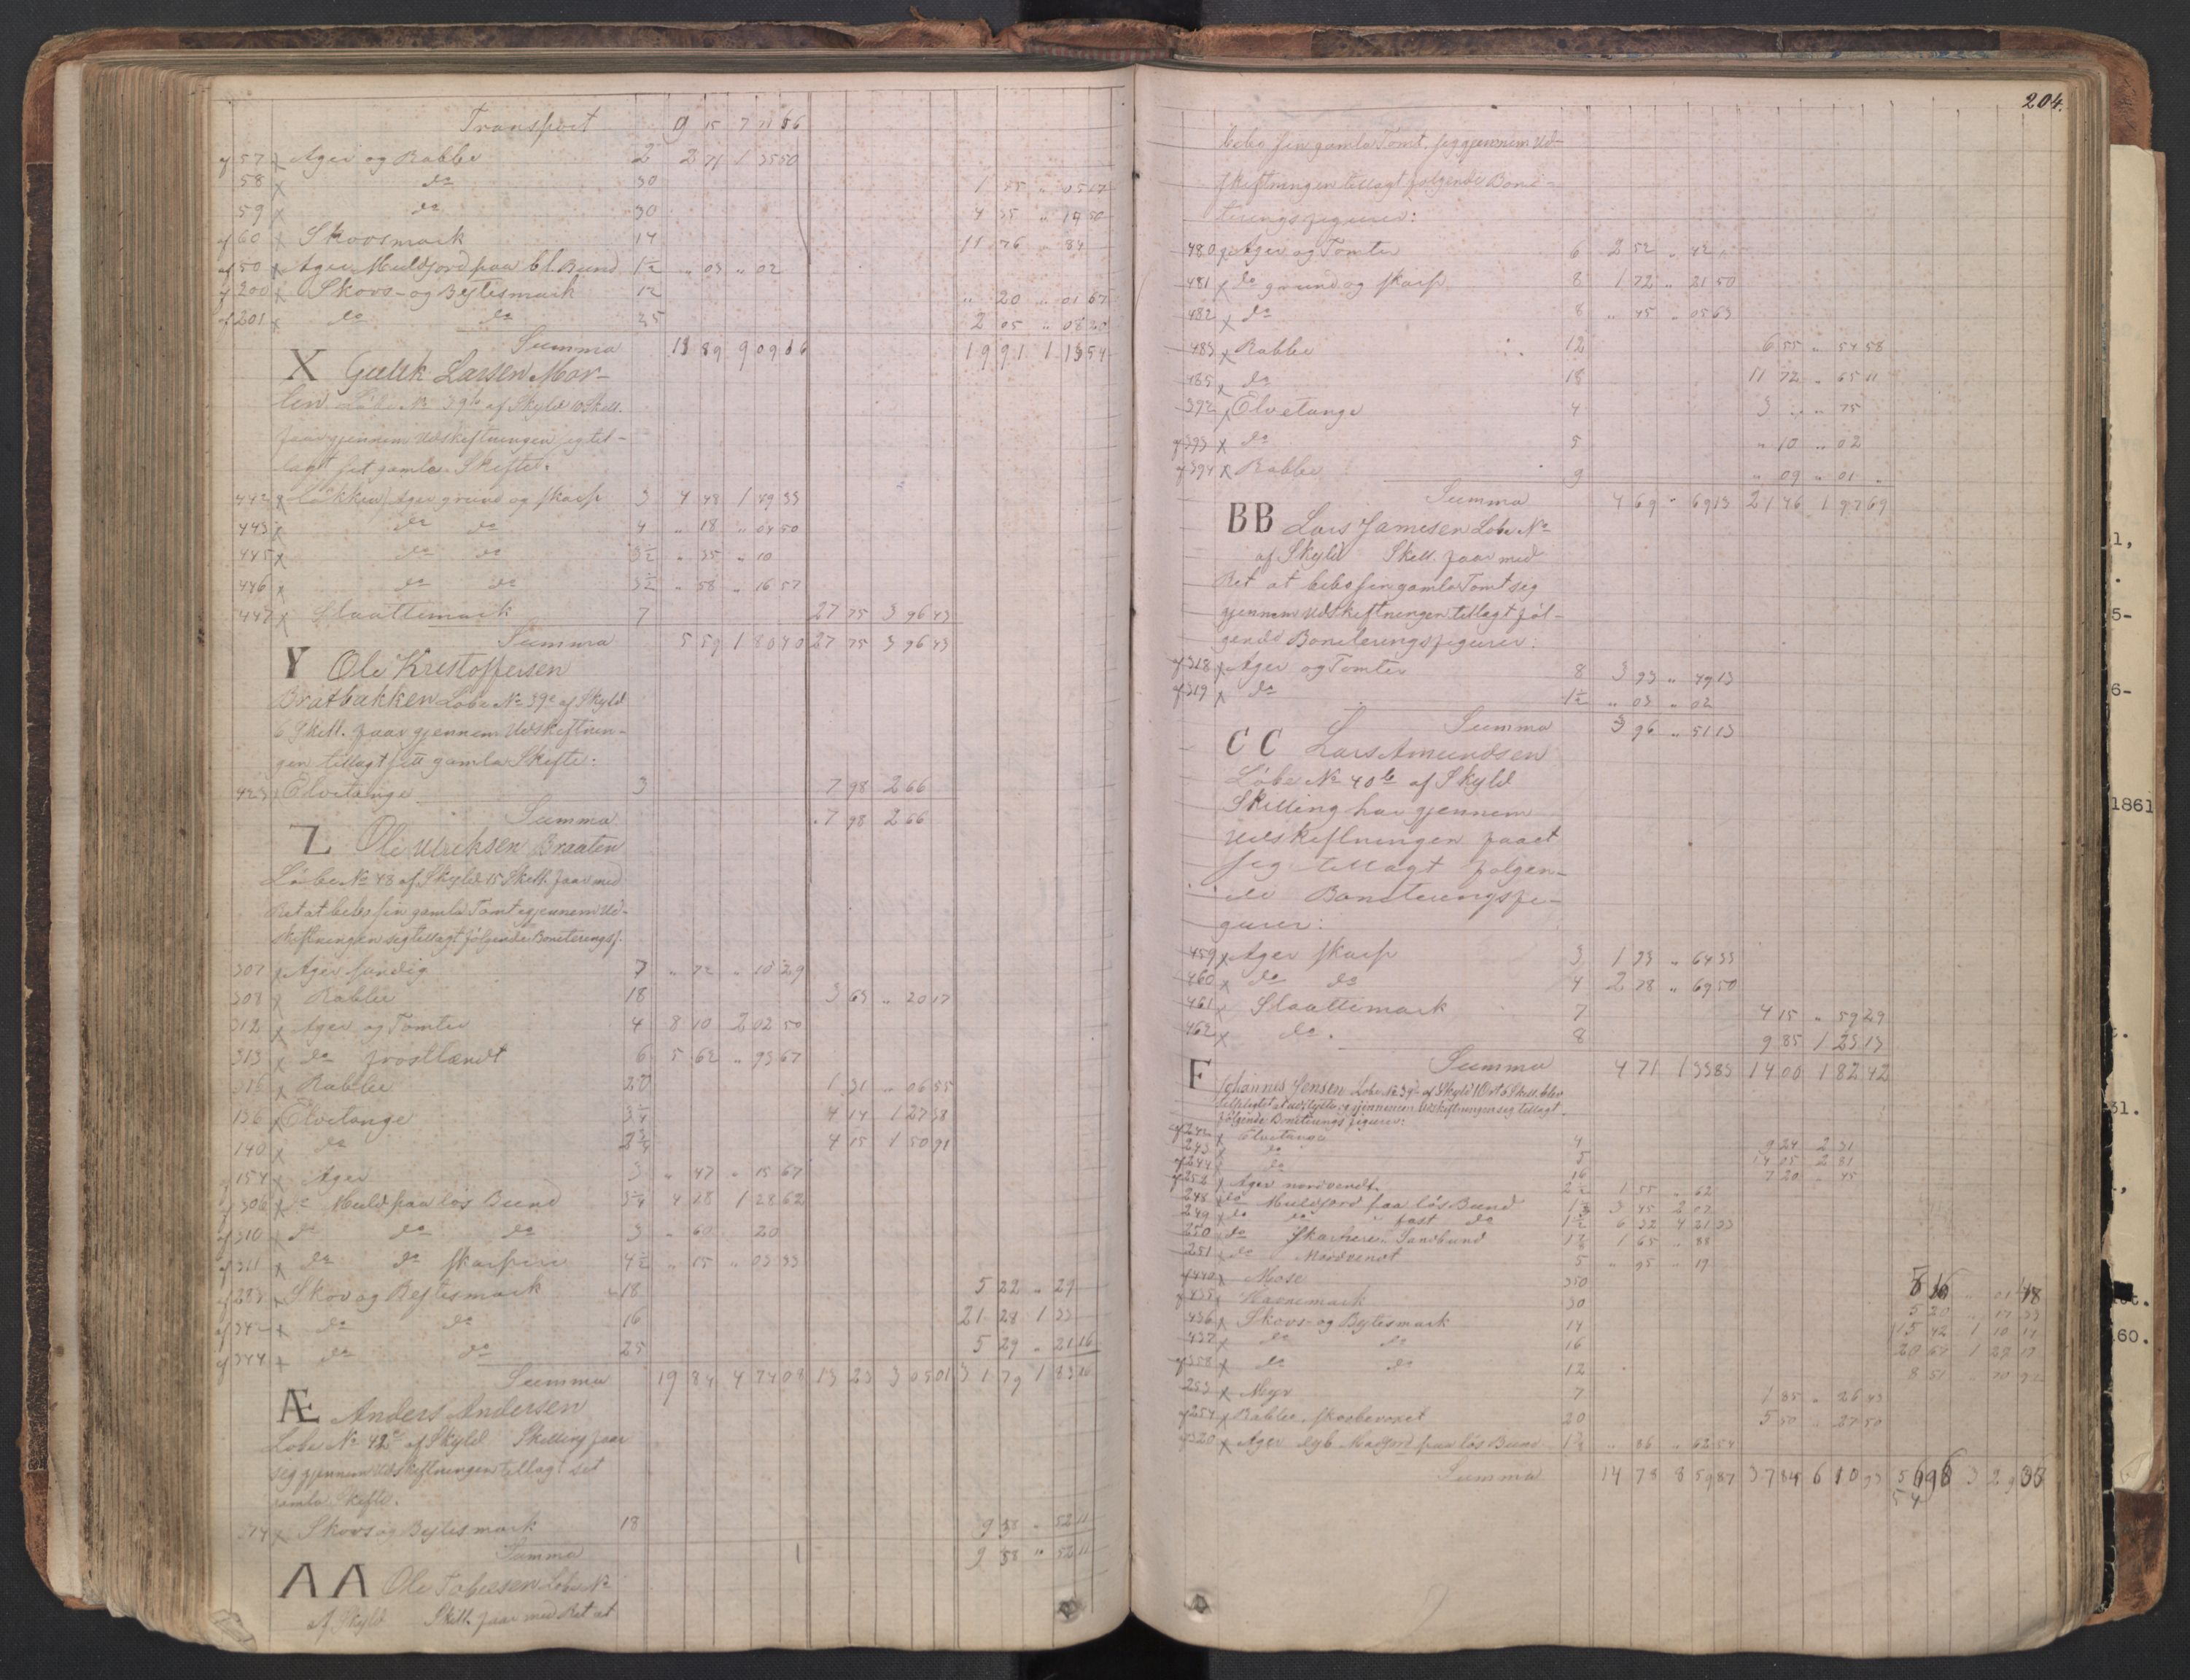 Transport 9 15 7 71 56
af 57 x Ager og Rabbe 2 2 71 1 35 50
58 x do 30 1 55 " 05 17
59 x do 30 4 35 " 14 50
af 60 x Skovsmark 14 11 76 " 84
af 50 x Ager Muldjord paa bl. Bund 1½ " 03 " 02
af 200 x Skovs- og Bejtesmark 12 " 20 " 01 67
af 201 x do do 25 2 05 " 08 20
Summa 13 89 9 09 06 19 91 1 13 54
X Gulik Larsen Mor-
ten Løbe No 39b af Skyld 10 Skill.
faar gjennem Udskiftningen sig til-
lagt sit gamle Skifte:
442 x Løkken, Ager grund og skarp 3 4 48 1 49 33
443 x do do 4 " 18 " 04 50
445 x do do 3½ " 35 " 10
446 x do do 3½ " 58 " 16 57
447 x Slaattemark 7 27 75 3 96 43
Summa 5 59 1 80 40 27 75 3 96 43
Y Ole Kristoffersen
Bratbakken Løbe No 39c af Skyld
6 Skill. faar gjennem Udskiftnin-
gen tillagt sitt gamle Skifte:
423 x Elvetange 3 7 98 2 66
Summa 7 98 2 66
Z Ole Ulriksen Braaten
Løbe No 48 af Skyld 15 Skill. faar med
Ret at bebo sin gamle Tomt gjennem Ud-
skiftningen sig tillagt følgende Boniteringsf.
307 x Ager sandig 7 " 72 " 10 29
308 x Rabbe 18 3 63 " 20 17
312 x Ager og Tomter 4 8 10 2 02 50
313 x do frostlændt 6 5 62 " 93 67
316 x Rabbe 20 1 31 " 06 55
136 x Elvetange 3¼ 4 14 1 27 38
140 x do 2¾ 4 15 1 50 91
af 154 x Ager 3 " 47 " 15 67
af 306 x do Muld paa løs Bund 3¼ 4 18 1 28 62
af 310 x do do do 3 " 60 " 20
af 311 x do do skarpere 4½ " 15 " 03 33
af 283 x Skov og Bejtesmark 18 5 22 " 29
af 342 x do do 16 21 28 1 33
af 344 x do do 25 5 29 " 21 16
Summa 19 84 4 74 08 13 23 3 05 01 31 79 1 83 16
Æ Anders Andersen
Løbe No 42c af Skyld Skilling faar
sig gjennem Udskiftningen tillagt set
gamle Skifte.
74 x Skovs og Bejtesmark 18 9 38 " 52 11
Summa 9 38 " 52 11
AA Ole Tobiesen Løbe No
af Skyld Skill. faar med Ret at
204.
bebo sin gamle Tomt, sig gjennem Ud-
skiftningen tillagt følgende Boni-
teringsfigurer:
480 x Ager og Tomter 6 2 52 " 42 "
481 x do grund og skarp 8 1 72 " 21 50
482 x do 8 " 45 " 05 63
483 x Rabbe 12 6 55 " 54 58
485 x do 18 11 72 " 65 11
392 x Elvetange 4 3 " " 75
af 393 x do 5 " 10 " 02
af 394 x Rabbe 9 " 09 " 01 "
Summa 4 69 " 69 13 21 46 1 97 69
BB Lars Jamesen Løbe No
af Skyld Skill. faar med
Ret at bebo sin gamle Tomt sig
gjennem Udskiftningen tillagt føl-
gende Boniteringsfigurer:
af 318 x Ager og Tomter 8 3 93 " 49 13
af 319 x do 1½ " 03 " 02
Summa 3 96 " 51 13
CC Lars Amundsen
Løbe No 40b af Skyld
Skilling har gjennem
Udskiftningen faaet
sig tillagt følgen-
de Boniteringsfi-
gurer:
459 x Ager skarp 3 1 93 " 64 33
460 x do do 4 2 78 " 69 50
461 x Slaattemark 7 4 15 " 59 29
462 x do 8 9 85 1 23 13
Summa 4 71 1 33 83 14 00 1 82 42
F Johannes Jensen Løbe No 39d af Skyld 1 Ort 6 Skill. blev
selvpligtet at udflytte og gjennem Udskiftningen sig tillagt
følgende Boniterings figurer:
af 242 x Elvetange 4 9 24 2 31
243 x do 5 14 05 2 81
af 244 x do 16 7 20 " 45
af 252 x Ager nordvendt 2½ 1 55 " 62
248 x do Muldjord paa løs Bund 3 45 2 07
249 x do do fast do 1½ 6 32 4 21 33
250 x do Skarpere Sandbund 1 65 " 88
251 x do Nordvendt 5 " 95 " 19
af 440 x Mose 350
af 435 x Havnemark 30 5 20 " 17 33
436 x Skovs- og Bejtesmark 14 15 42 1 10 14
437 x do do 16 20 67 1 29 19
af 358 x do do 12 8 51 " 70 92
253 x Myr 7 1 85 " 26 43
af 254 x Rabbe, skovbevoxet 20 5 50 " 27 50
af 320 x Ager dyb Madjord paa løs Bund " 86 " 62 54
Summa 14 78 8 59 87 37 84 6 10 93
1,
5-
6-
1861
31.
60.